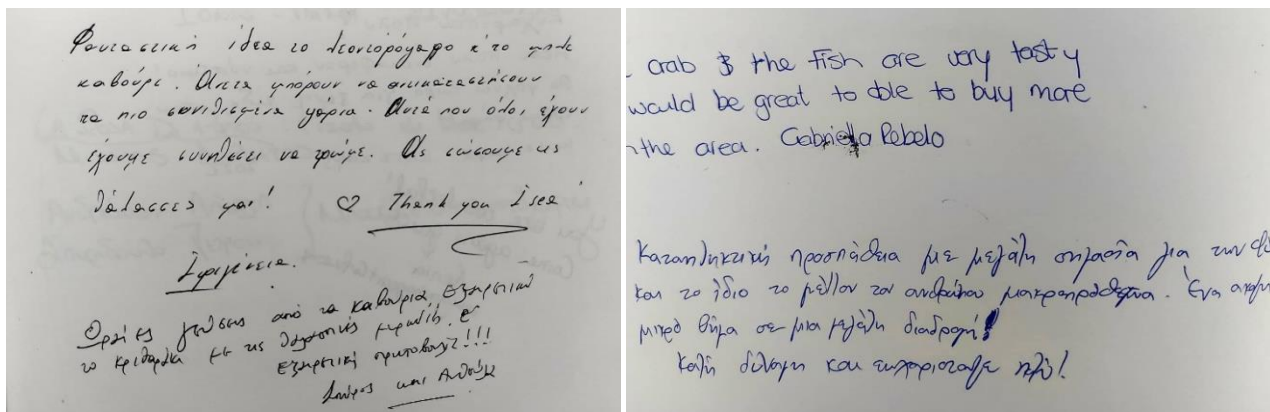 Φανταστική ιδέα το λεοντόψαρο κ' το μπλε
καβούρι. Αυτά μπορούν να αντικαταστήσουν
τα πιο συνηθισμένα ψάρια. Αυτά που όλοι έχουν
έχουμε συνηθίσει να τρώμε. Ας σώσουμε τις
θάλασσες μας! ♡ Thank you Isea
Ιφιγένεια.
Ωραίες γεύσεις από τα καβούρια, εξαιρετικό
το κριθαράκι με τις θαλασσινές
εξαιρετική πρωτοβουλία!!!
Σπύρος και
crab & the fish are very tasty
would be great to able to buy more
the area. Gabriella Rebelo
Καταπληκτική προσπάθεια με μεγάλη σημασία για την
και το ίδιο το μέλλον του ανθρώπου μακροπρόθεσμα. Ένα ακόμη
μικρό βήμα σε μια μεγάλη διαδρομή!
Καλή δύναμη και ευχαριστούμε πολύ!